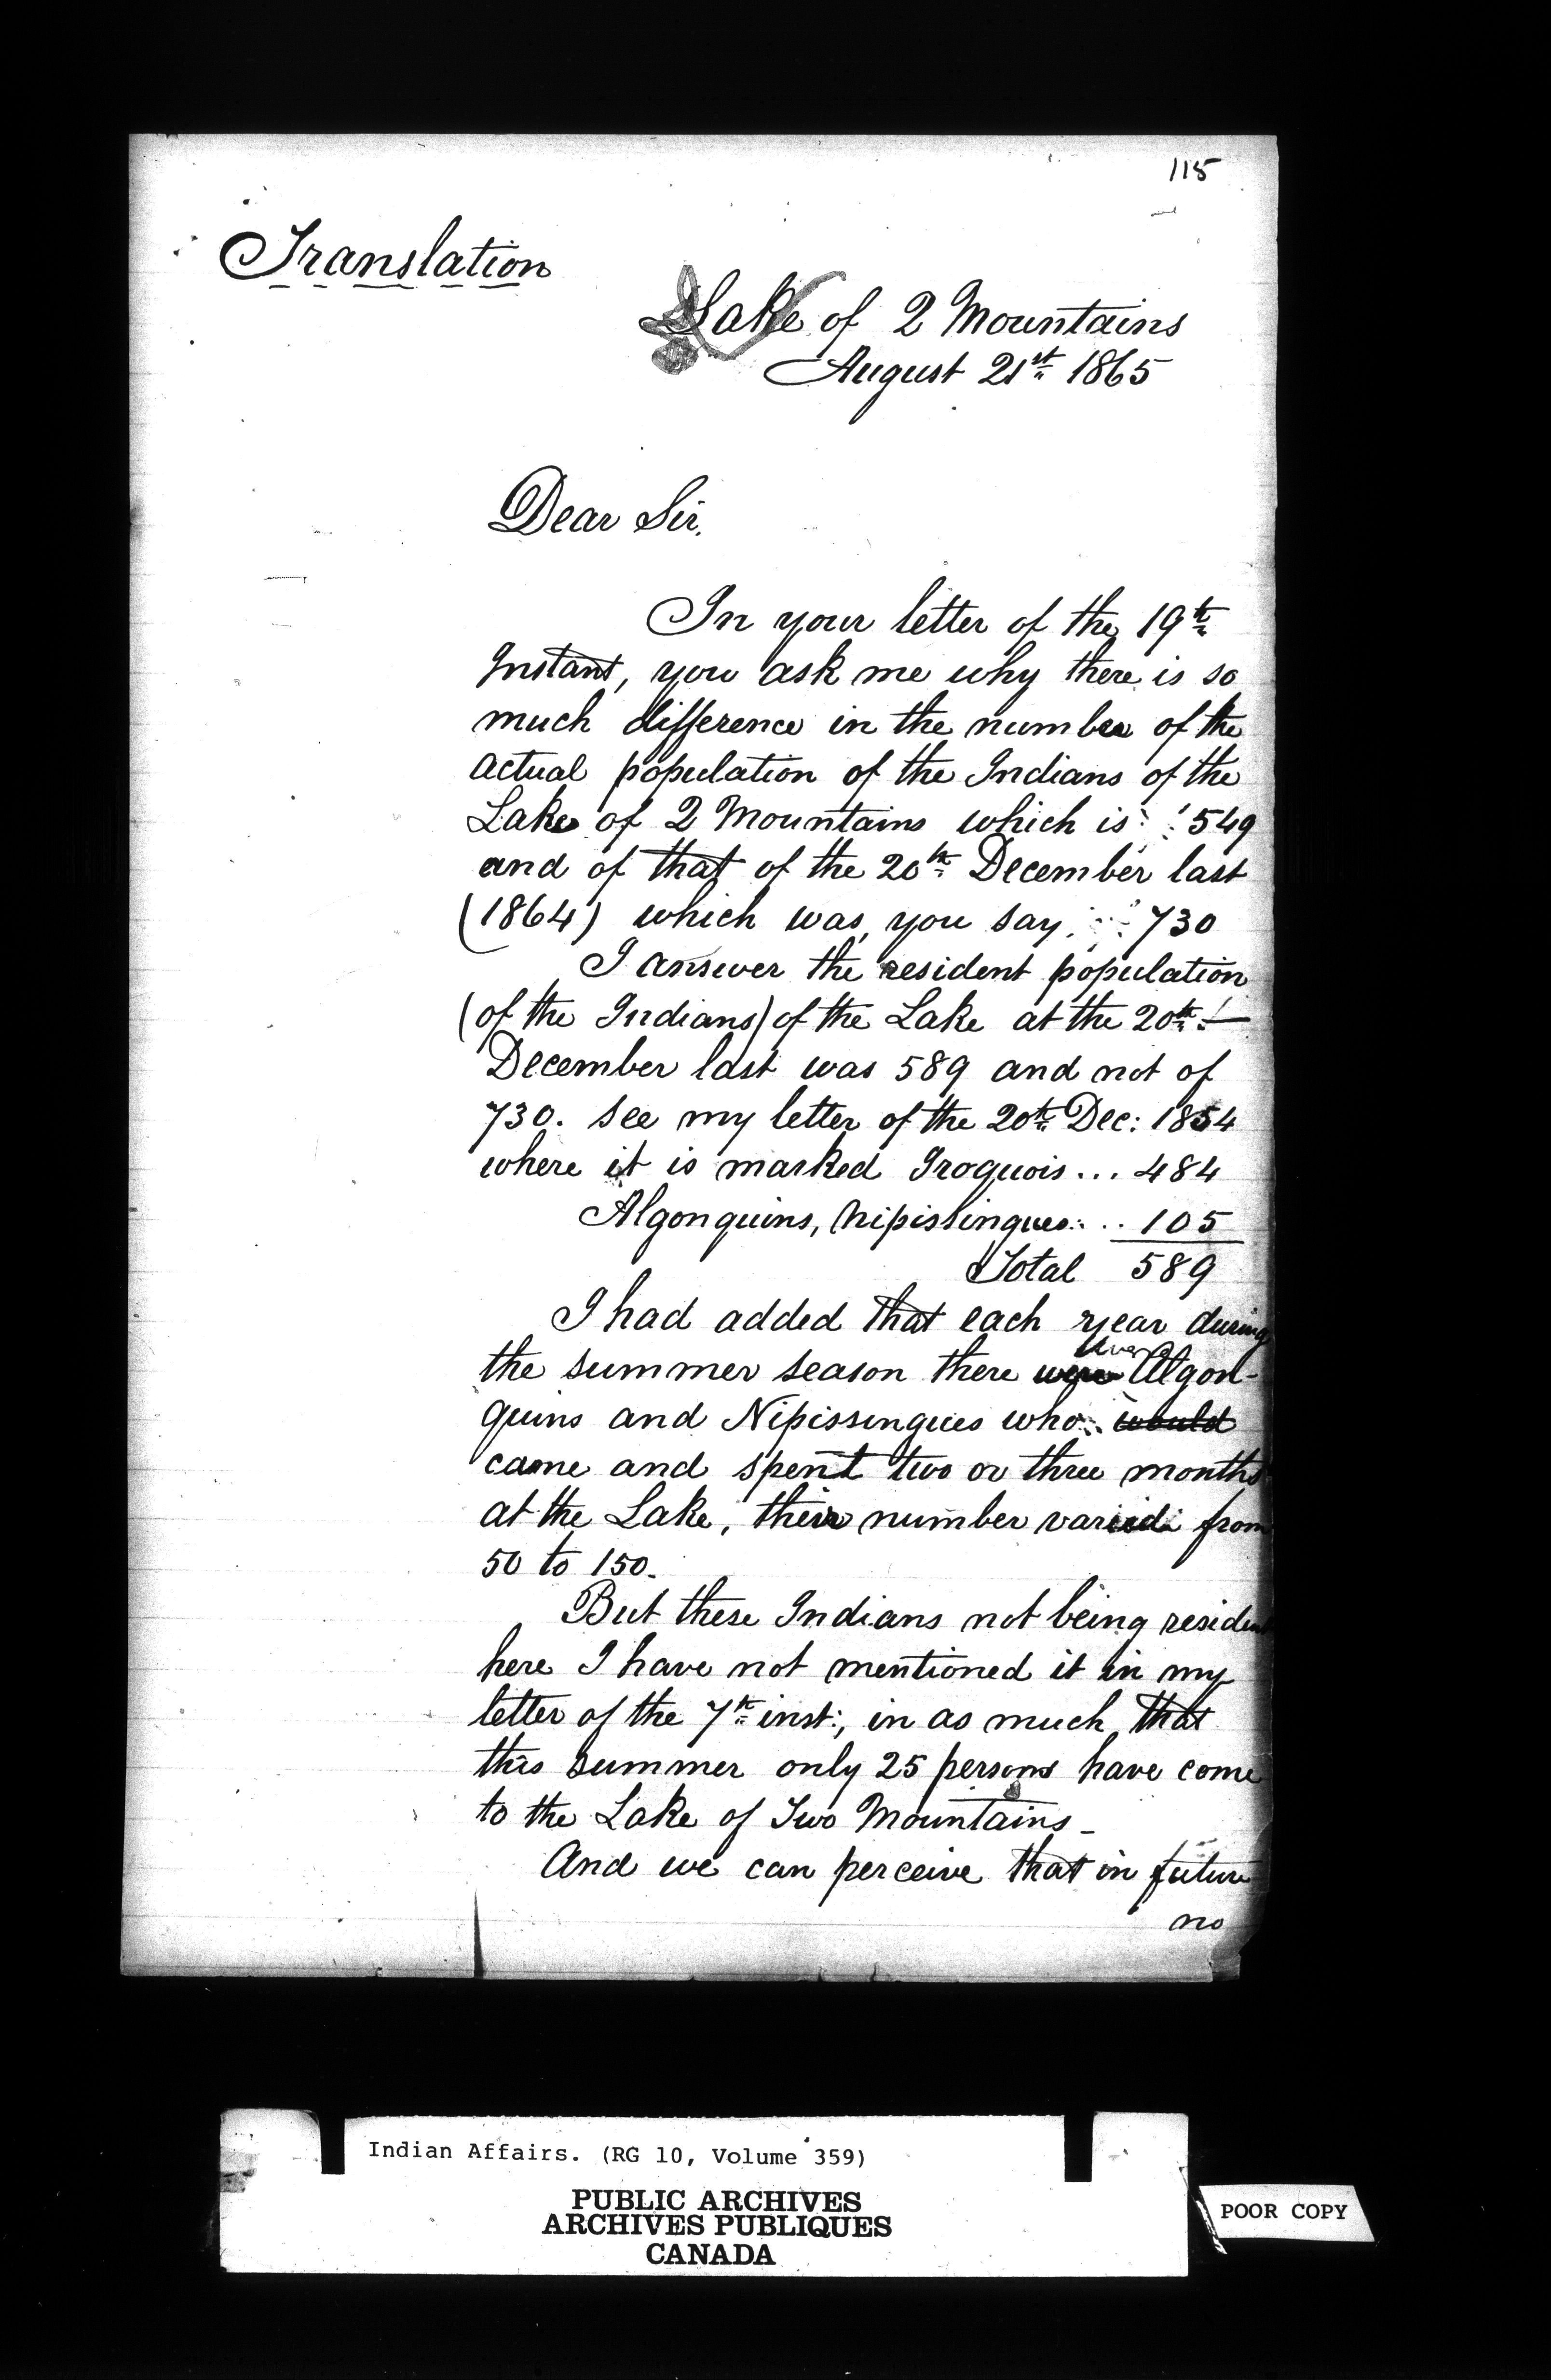 115
Translation
Lake of 2 Mountains
August 21st 1865
Dear Sir.
In your letter of the 19th
Instant, you ask me why there is so
much difference in the number of the
actual population of the Indians of the
Lake of 2 Mountains which is : 549
and of that of the 20th December last
(1864) which was, you say, 730
I answer the resident population
(of the Indians) of the Lake at the 20th
December last was 589 and not of
730. See my letter of the 20th Dec: 1854
where it is marked Iroquois... 484
Algonquins, Nipissingues... 105
Total 589
I had added that each year during
the summer season there were Algon-
quins and Nipissingues who would
came and spent two or three months
at the Lake, their number varied from
50 to 150.
But these Indians not being resident
here I have not mentioned it in my
letter of the 7th inst:, in as much, that
this summer only 25 persons have come
to the Lake of Two Mountains_
And we can perceive that in future
no
Indian Affairs. (RG 10, Volume 359)
PUBLIC ARCHIVES
ARCHIVES PUBLIQUES
CANADA
POOR COPY